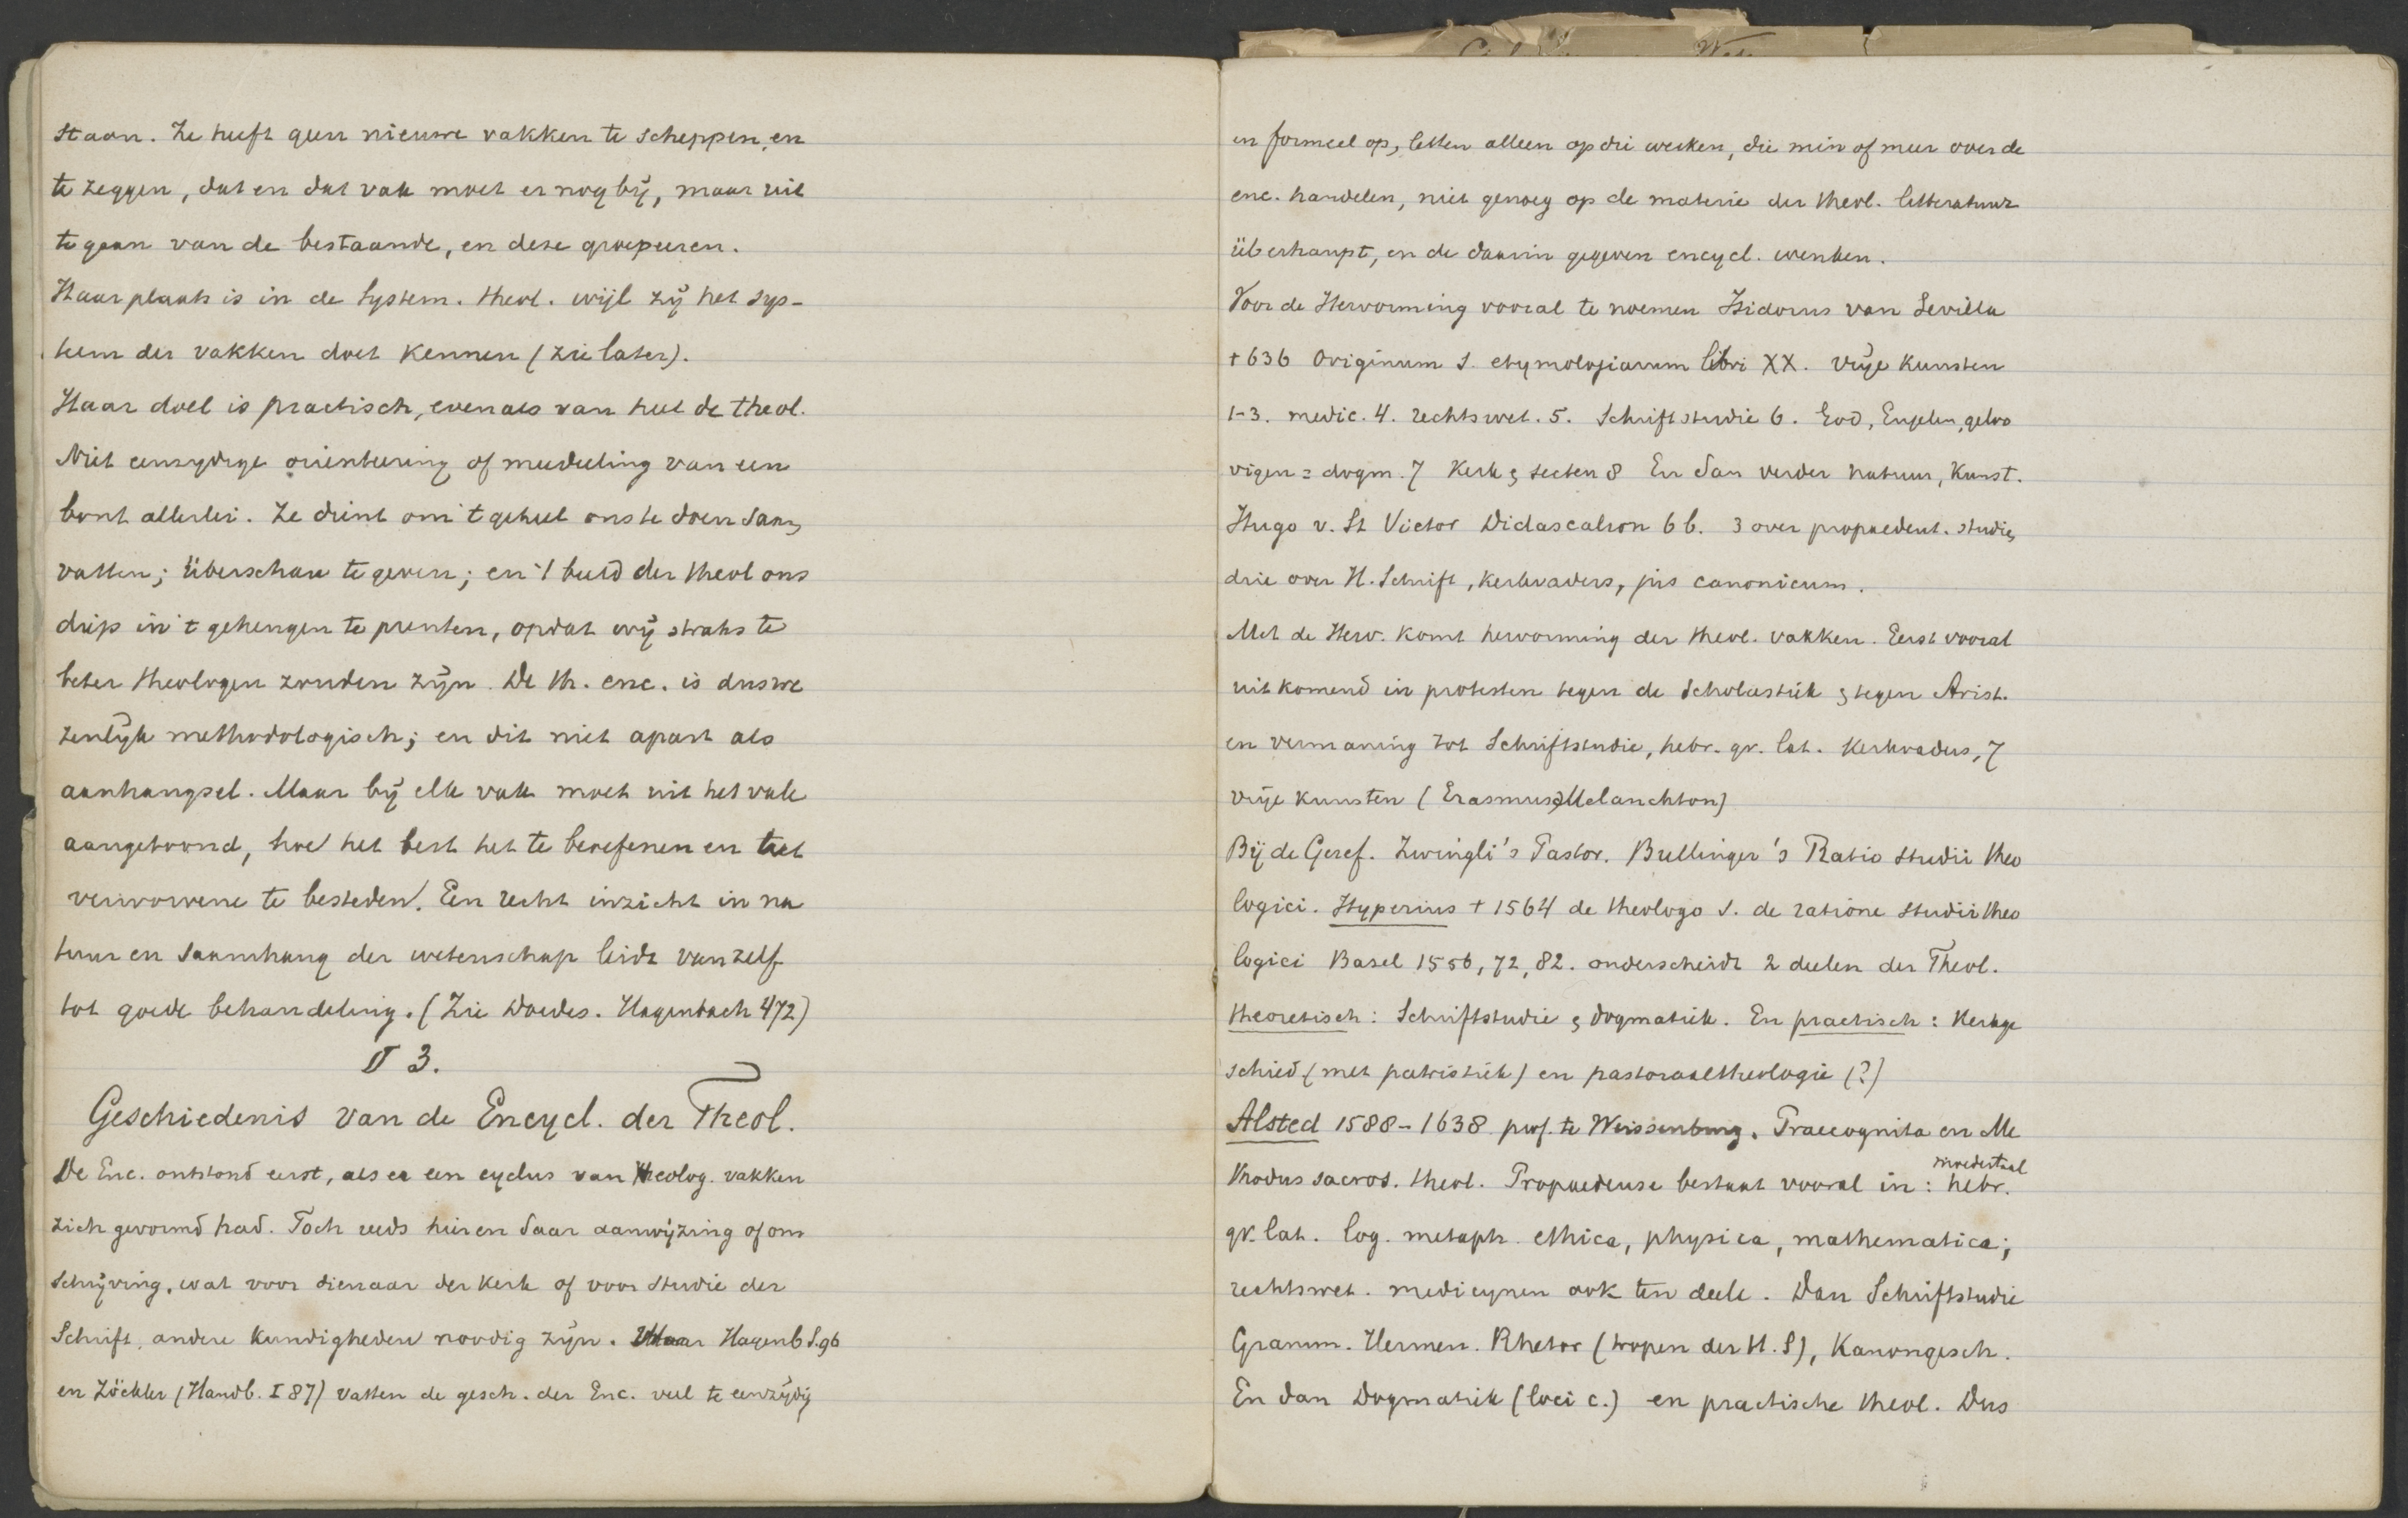 staan. Ze heeft geen nieuwe vakken te scheppen, en
te zeggen, dat en dat vak moet er nog bij, maar uit
te gaan van de bestaande, en deze groepeeren.
Haar plaats is in de System. theol. wijl zij het sys-
teem der vakken doet kennen (zie later).
Haar doel is practisch, evenals van heel de theol.
Niet eenzydige orienteering of mededeeling van een
bont allerlei. Ze dient om 't geheel ons te doen saam
vatten; überschau te geven; en 't beeld der theol ons
diep in 't geheugen te prenten, opdat wij straks te
beter theologen zouden zijn. De th. enc. is dus we
zenlijk methodologisch; en dit niet apart als
aanhangsel. Maar bij elk vak moet uit het vak
aangetoond, hoe het best het te beoefenen en het
verworvene te besteden. Een recht inzicht in na
tuur en saamhang der wetenschap leidt van zelf
tot goede behandeling. (Zie Doedes. Hagenbach 472)
§ 3.
Geschiedenis van de Encycl. der Theol.
De Enc. ontstond eerst, als er een cyclus van theolog. vakken
zich gevormd had. Toch reeds hier en daar aanwijzing of om
schrijving, wat voor dienaar der kerk of voor studie der
Schrift, andere kundigheden noodig zijn. Maar Hagenb S. 96
en Zöckler (Handb. I 87) vatten de gesch. der Enc. veel te eenzijdig
en formeel op, letten alleen op die werken, die min of meer over de
enc. handelen, niet genoeg op de materie der theol. litteratuur
überhaupt, en de daarin gegeven encycl. wenken.
Voor de Hervorming vooral te noemen Isidorus van Sevilla
+ 636 Originum s. etymologiarum libri XX. Vrije kunsten
1-3. medic. 4. rechtswet. 5. Schriftstudie 6. God, Engelen, geloo
vigen = dogm. 7 Kerk & secten 8 En dan verder natuur, kunst.
Hugo v. St Victor Didascalion 6 b. 3 over propaedeut. studie,
drie over H. Schrift, kerkvaders, jus canonicum.
Met de Herv. komt hervorming der theol. vakken. Eerst vooral
uitkomend in protesten tegen de Scholastiek & tegen Arist.
en vermaning tot Schriftstudie, hebr. gr. lat. kerkvaders, 7
vrije kunsten (Erasmus & Melanchton)
Bij de Geref. Zwingli's Pastor. Bullinger's Ratio studii theo
logici. Hyperius + 1564 de theologo s. de ratione studii theo
logici Basel 1556, 72, 82. onderscheidt 2 deelen der Theol.
theoretisch: Schriftstudie & dogmatiek. En practisch: Kerkge
schied (met patristiek) en pastoraaltheologie (?)
Alsted 1588-1638 prof. te Weissenburg. Praecognita en Me
thodus sacros. theol. Propaedeuse bestaat vooral in: moedertaal hebr.
gr. lat. log. metaph. ethica, physica, mathematica;
rechtswet. medicynen ook ten deele. Dan Schriftstudie
Gramm. Hermen. Rhetor (tropen der H. S), Kanongesch.
En dan Dogmatiek (loci c.) en practische theol. Dus